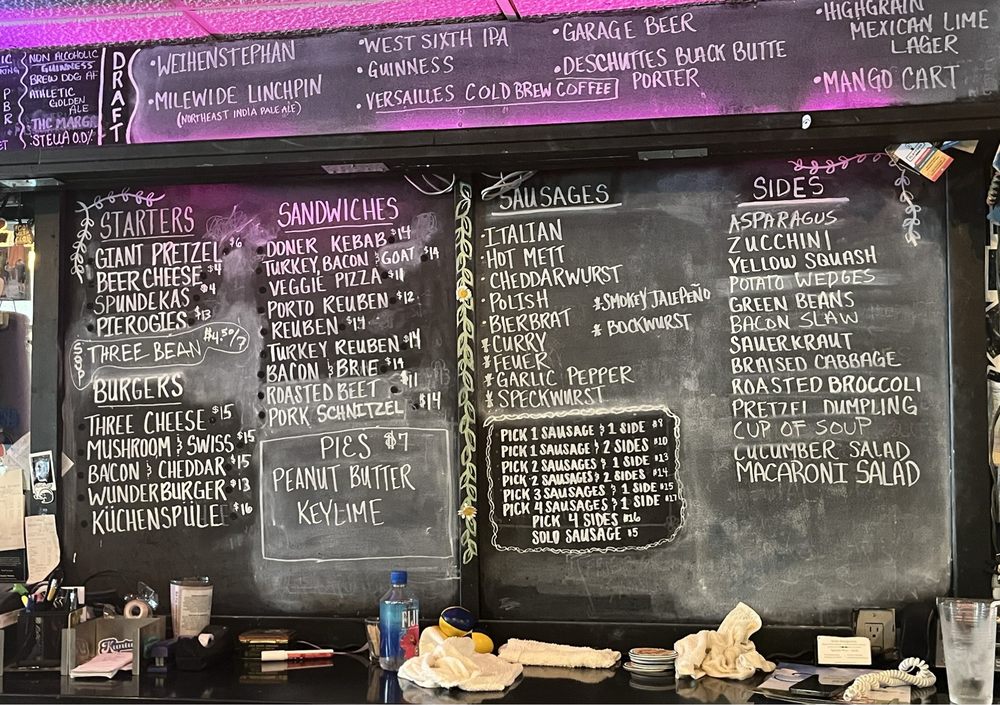 NON ALCOHOLIC
GUINNESS
BREW DOG AF
ATHLETIC
GOLDEN
ALE
STELLA O.O%
DRAFT
•WEIHENSTEPHAN
•MILEWIDE LINCHPIN
(NORTHEAST INDIA PALE ALE)
•WEST SIXTH IPA
•GUINNESS
•VERSAILLES COLD BREW COFFEE
•GARAGE BEER
•DESCHUTTES BLACK BUTTE
PORTER
•HIGHGRAIN
MEXICAN LIME
LAGER
•MANGO CART
STARTERS
GIANT PRETZEL $6
BEER CHEESE $4
SPUNDEKAS $4
PIEROGIES $13
SOUP THREE BEAN $4.50/7
BURGERS
THREE CHEESE $15
MUSHROOM & SWISS $15
BACON & CHEDDAR $15
WUNDERBURGER $13
KÜCHENSPÜLE $16
SANDWICHES
DONER KEBAB $14
TURKEY, BACON & GOAT $14
VEGGIE PIZZA $11
PORTO REUBEN $12
REUBEN $14
TURKEY REUBEN $14
BACON & BRIE $14
ROASTED BEET $11
PORK SCHNITZEL $14
PIES $7
PEANUT BUTTER
KEYLIME
SAUSAGES
•ITALIAN
•HOT METT
•CHEDDARWURST
•POLISH
•BIERBRAT
*CURRY
*FEUER
*GARLIC PEPPER
*SPECKWURST
*SMOKEY JALEPEÑO
*BOCKWURST
PICK 1 SAUSAGE & 1 SIDE $9
PICK 1 SAUSAGE & 2 SIDES $10
PICK 2 SAUSAGES & 1 SIDE $13
PICK 2 SAUSAGES & 2 SIDES $14
PICK 3 SAUSAGES & 1 SIDE $15
PICK 4 SAUSAGES & 1 SIDE $17
PICK 4 SIDES $16
SOLO SAUSAGE $5
SIDES
ASPARAGUS
ZUCCHINI
YELLOW SQUASH
POTATO WEDGES
GREEN BEANS
BACON SLAW
SAUERKRAUT
BRAISED CABBAGE
ROASTED BROCCOLI
PRETZEL DUMPLING
CUP OF SOUP
CUCUMBER SALAD
MACARONI SALAD
FIJI